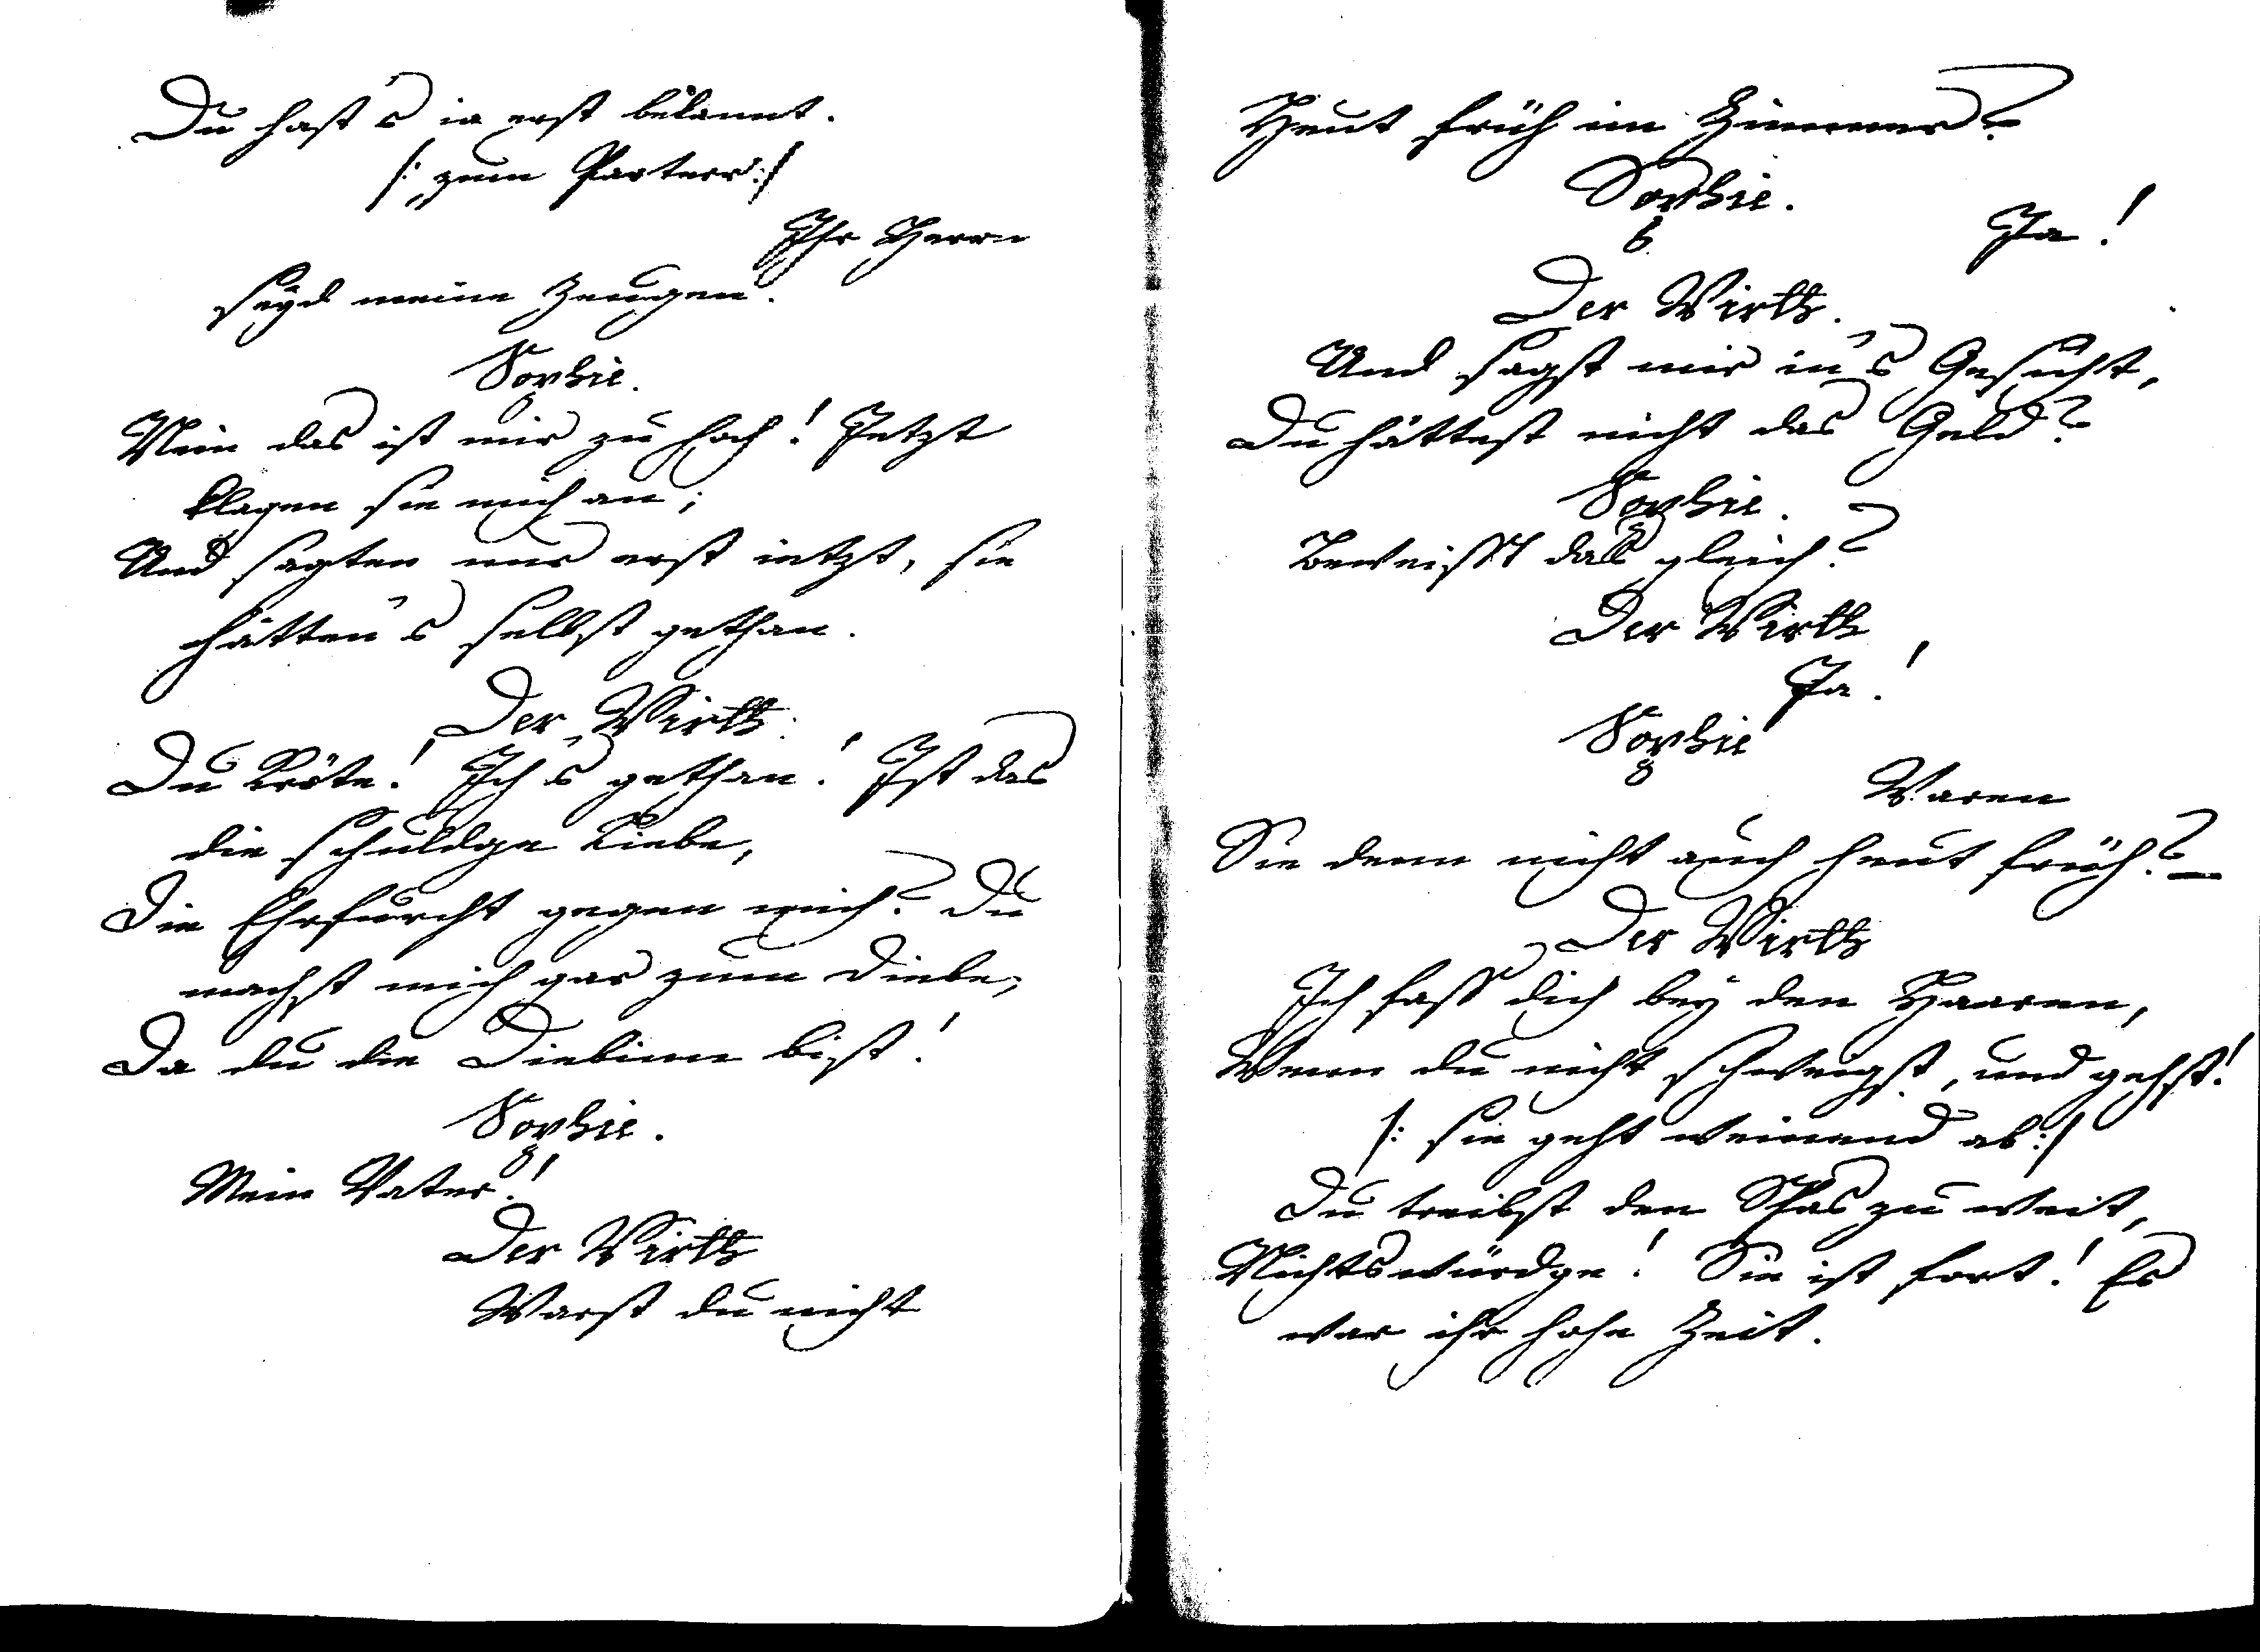 Du hast's ia erst bekannt.
/: zum Parterr :/
Ihr Herrn
seyd meine Zeugen.
Sophie.
Nein das ist mir zu hoch! Jetzt
klagen sie mich an;
Und sagten mir erst ietzt, sie
hätten's selbst gethan.
Der Wirth.
Du Kröte! Ich's gethan! Ist das
die schuldge Liebe,
Die Ehrfurcht gegen mich? Du
machst mich gar zum Diebe,
Da du die Diebinn bist!
Sophie.
Mein Vater!
Der Wirth
Warst du nicht
Heut früh im Zimmer?
Sophie.
Ja!
Der Wirth.
Und sagst mir in's Gesicht,
Du hättest nicht das Geld?
Sophie.
Beweisst das gleich?
Der Wirth
Ja!
Sophie
Waren
Sie denn nicht auch heut früh? –
Der Wirth
Ich fass dich bey den Haaren,
Wenn du nicht schweigst, und gehst!
/: sie geht weinend ab :/
Du treibst den Spas zu weit,
Nichtswürdge! Sie ist fort! Es
war ihr hohe Zeit.